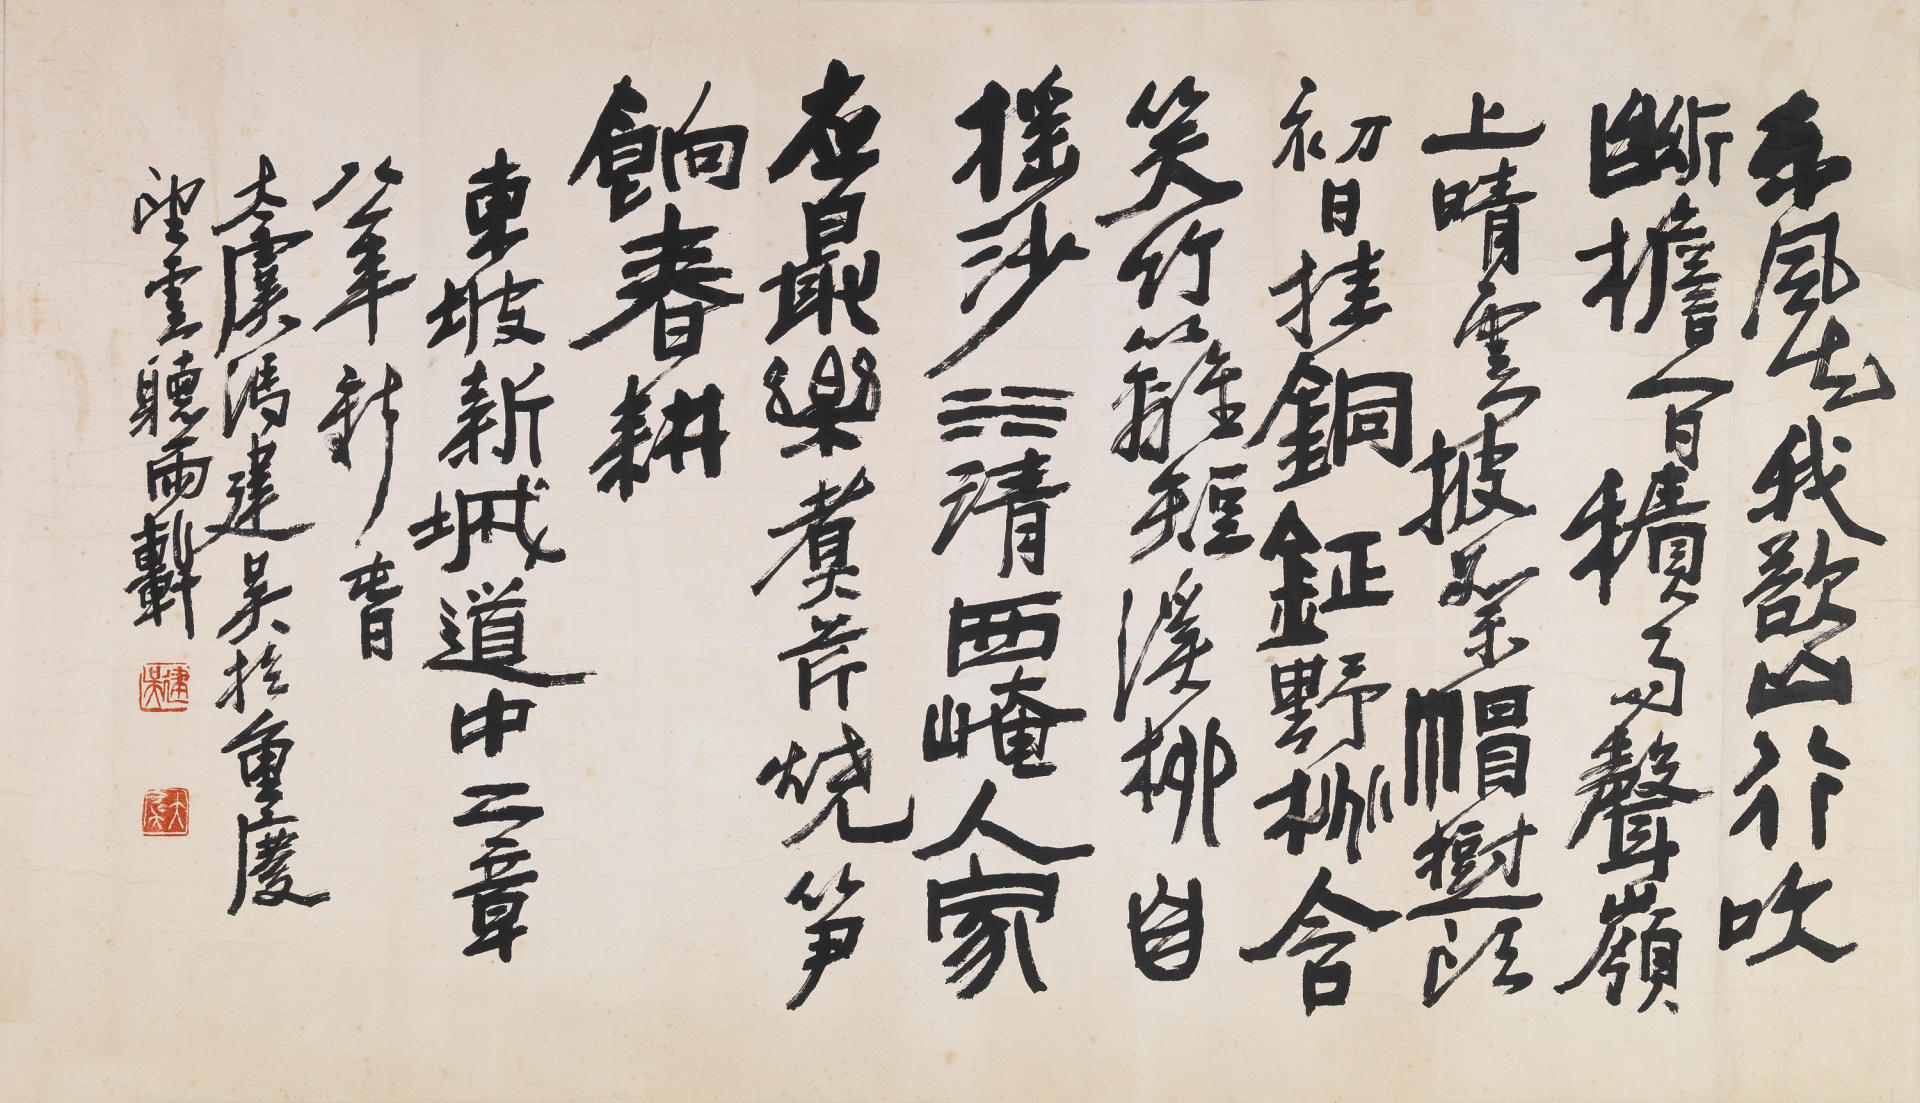 東風知我欲山行吹
斷檐間積雨聲嶺
上晴雲披絮帽樹頭
初日挂銅鉦野桃含
笑竹籬短溪柳自
搖沙水清西崦人家
應最樂煮芹燒筍
餉春耕
東坡新城道中二章
八年新旾
太虞馮建吳於重慶
望雲聽雨軒
建吳